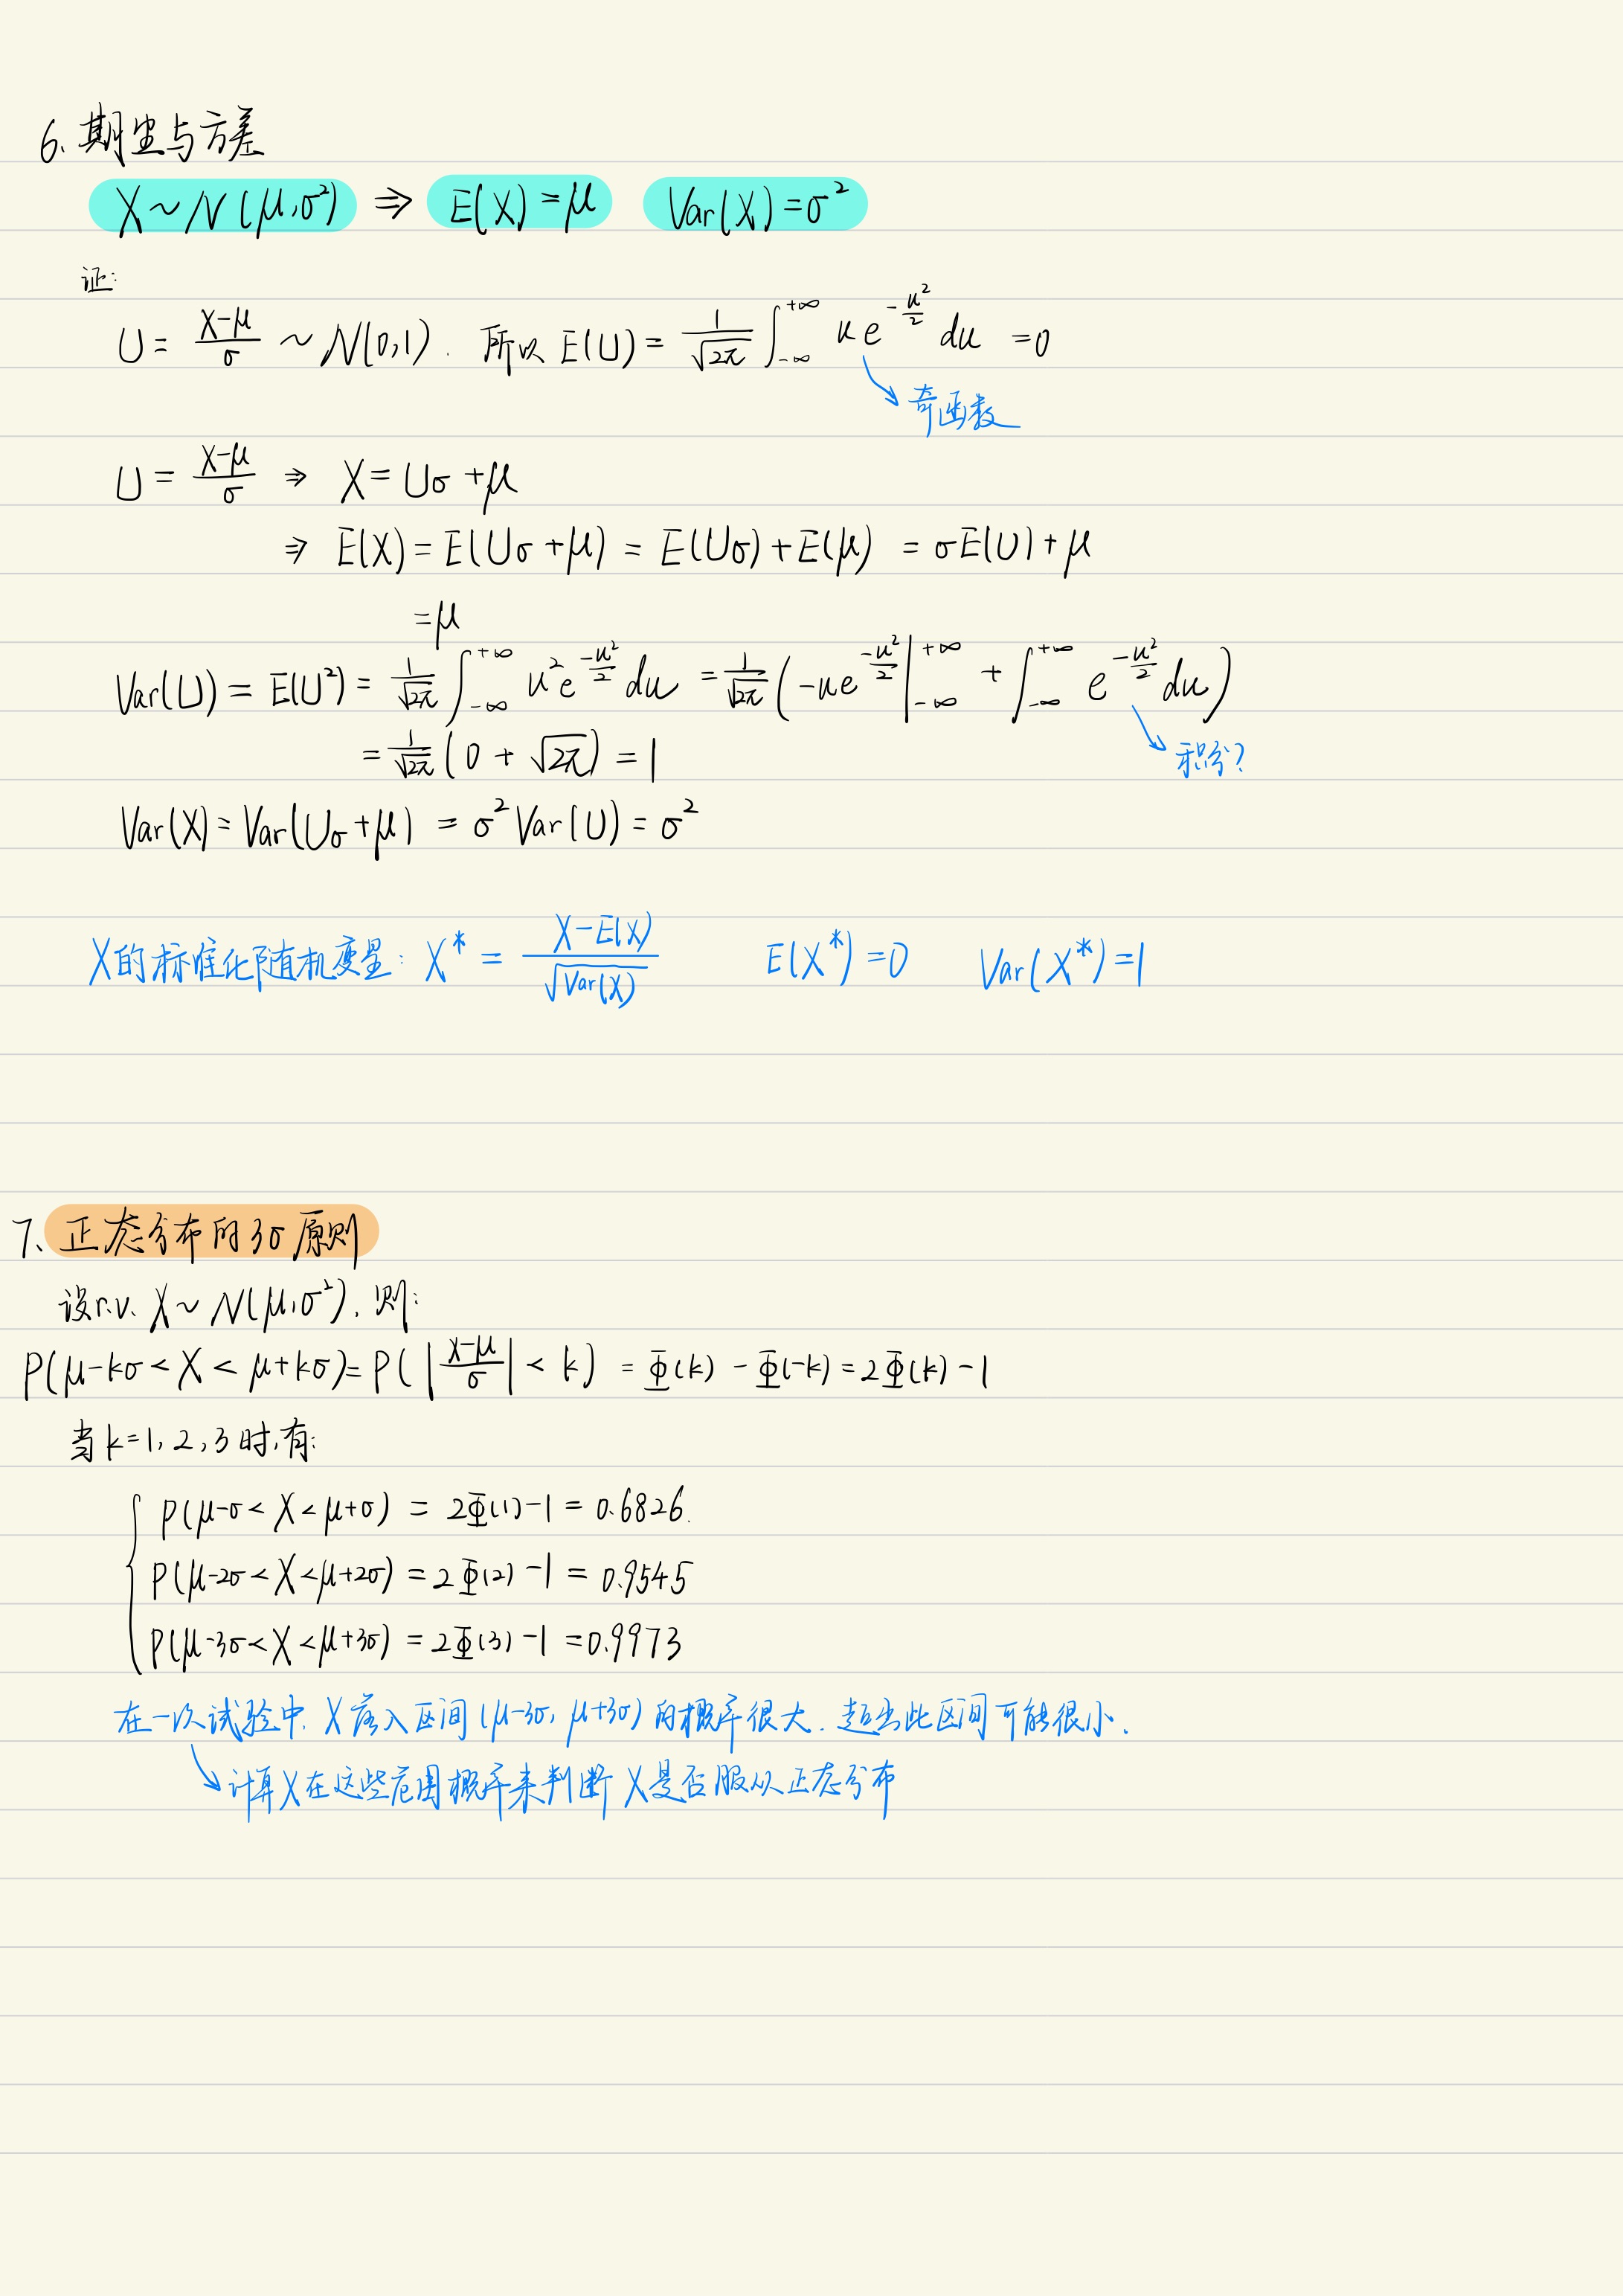 6. 期望与方差
X ~ N(μ,σ²) ⇒ E(X)=μ Var(X)=σ²
证:
U = (X-μ)/σ ~ N(0,1). 所以 E(U) = 1/√(2π) ∫_{-∞}^{+∞} u e^{-u²/2} du = 0
奇函数
U = (X-μ)/σ ⇒ X = Uσ+μ
⇒ E(X) = E(Uσ+μ) = E(Uσ)+E(μ) = σE(U)+μ
=μ
Var(U) = E(U²) = 1/√(2π) ∫_{-∞}^{+∞} u² e^{-u²/2} du = 1/√(2π) (-ue^{-u²/2} |_{-∞}^{+∞} + ∫_{-∞}^{+∞} e^{-u²/2} du)
= 1/√(2π) (0 + √(2π)) = 1
积分?
Var(X) = Var(Uσ+μ) = σ² Var(U) = σ²
X的标准化随机变量: X* = (X-E(X))/√(Var(X)) E(X*)=0 Var(X*)=1
7、正态分布的3σ原则
设r.v. X ~ N(μ,σ²), 则:
P(μ-kσ < X < μ+kσ) = P(|(X-μ)/σ| < k) = Φ(k) - Φ(-k) = 2Φ(k) - 1
当k=1,2,3时,有:
P(μ-σ < X < μ+σ) = 2Φ(1)-1 = 0.6826.
P(μ-2σ < X < μ+2σ) = 2Φ(2)-1 = 0.9545
P(μ-3σ < X < μ+3σ) = 2Φ(3)-1 = 0.9973
在一次试验中, X落入区间(μ-3σ, μ+3σ)的概率很大, 超出此区间可能很小.
计算X在这些范围概率来判断X是否服从正态分布